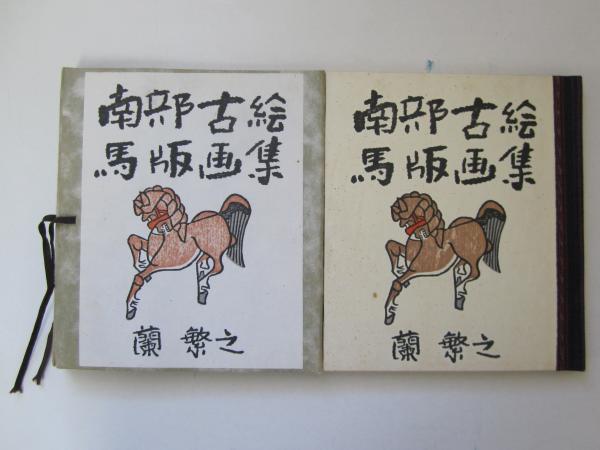 南部古絵
馬版画集
蘭 繁之
南部古絵
馬版画集
蘭 繁之